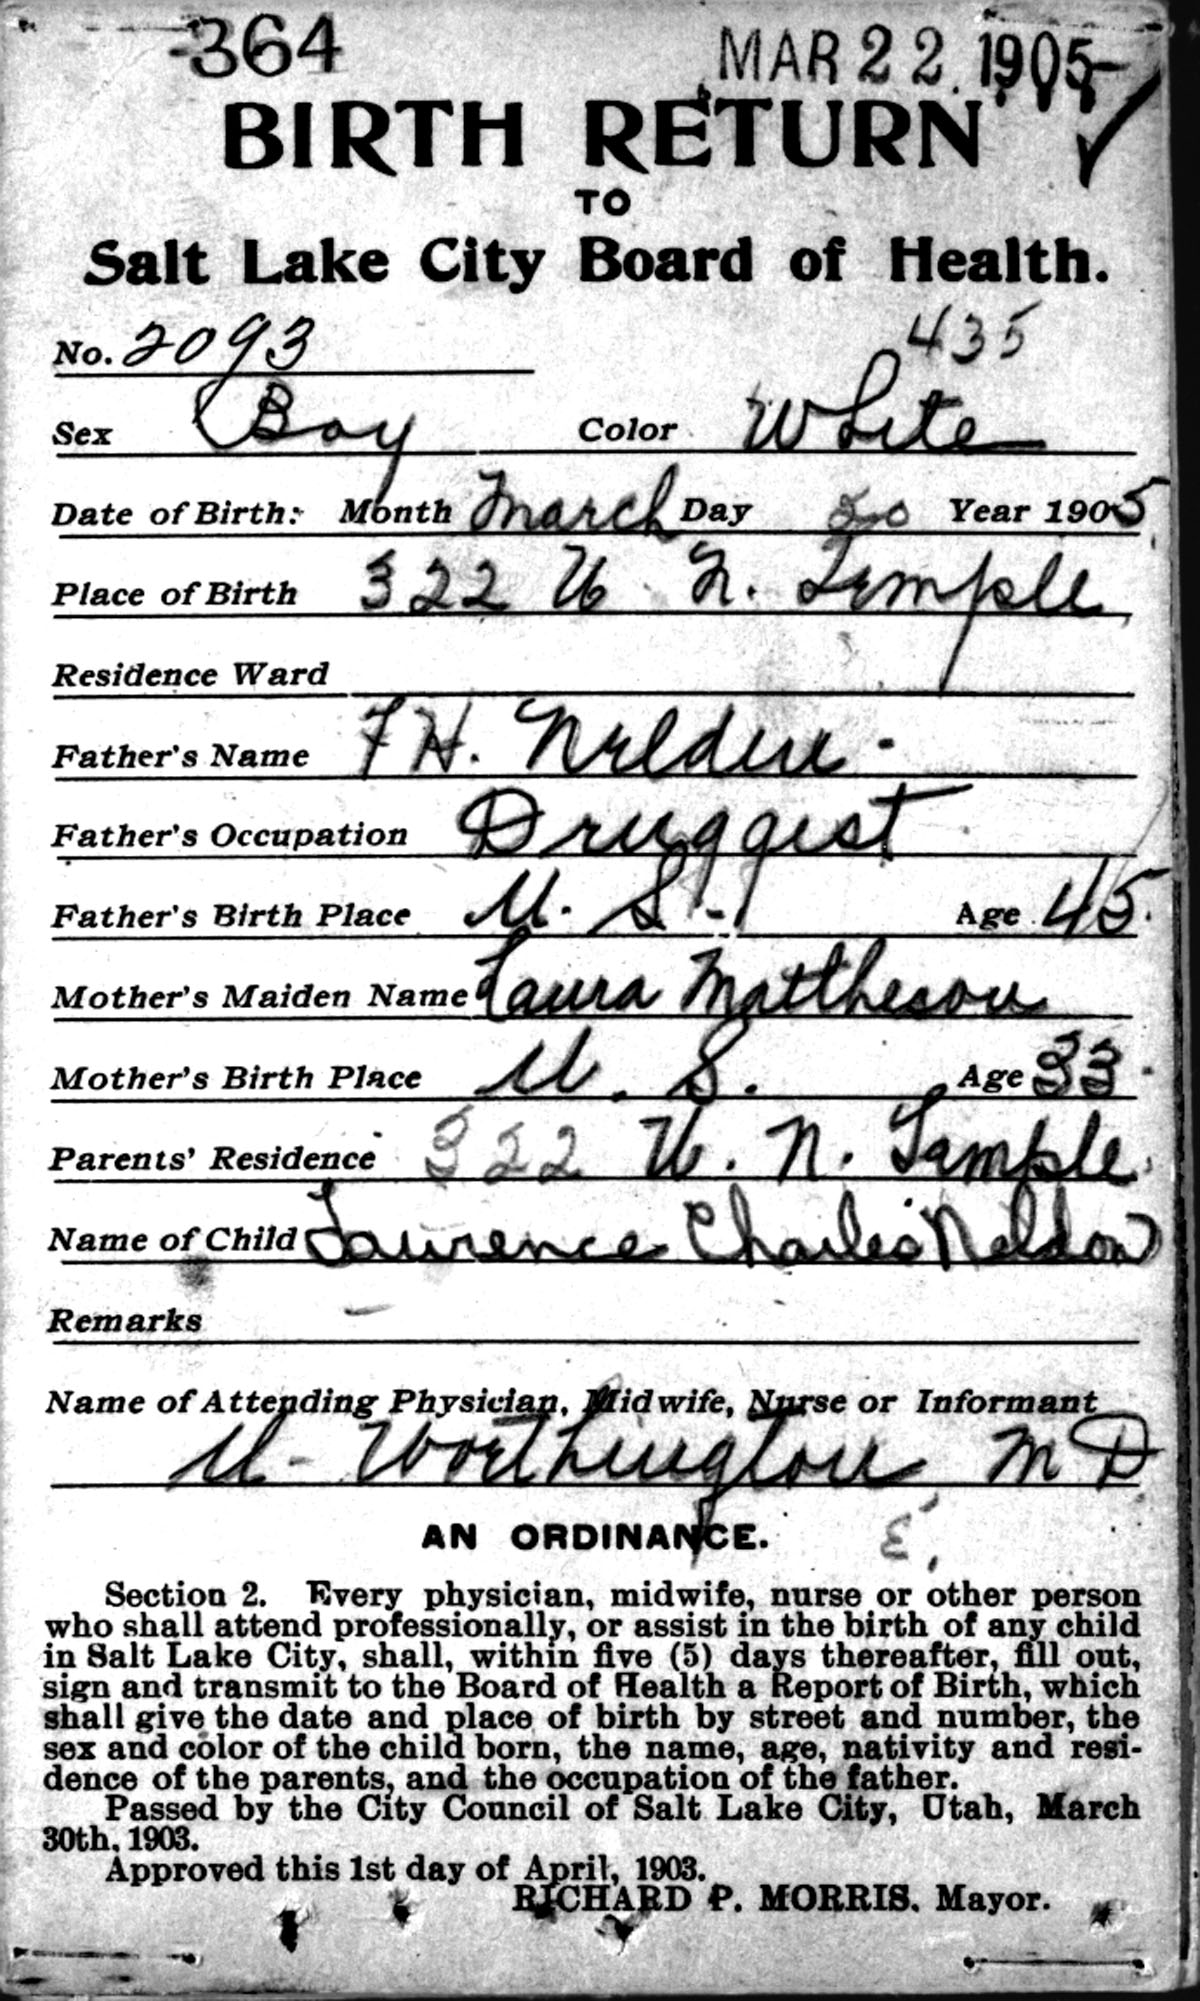 364 MAR 22 1905
BIRTH RETURN
TO
Salt Lake City Board of Health.
435
No. 2093
Sex Boy Color White
Date of Birth: Month March Day 20 Year 1905
Place of Birth 322 W. N. Temple
Residence Ward
Father's Name F H. Nelden
Father's Occupation Druggist
Father's Birth Place U. S. Age 45
Mother's Maiden Name Laura Mattheson
Mother's Birth Place U. S. Age 33
Parents' Residence 322 W. N. Temple
Name of Child Lawrence Charles Neldon
Remarks
Name of Attending Physician, Midwife, Nurse or Informant
U. Worthington M D
AN ORDINANCE.
Section 2. Every physician, midwife, nurse or other person
who shall attend professionally, or assist in the birth of any child
in Salt Lake City, shall, within five (5) days thereafter, fill out,
sign and transmit to the Board of Health a Report of Birth, which
shall give the date and place of birth by street and number, the
sex and color of the child born, the name, age, nativity and resi-
dence of the parents, and the occupation of the father.
Passed by the City Council of Salt Lake City, Utah, March
30th, 1903.
Approved this 1st day of April, 1903.
RICHARD P. MORRIS, Mayor.